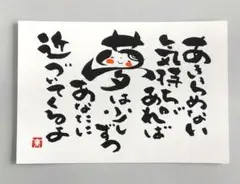 あきらめない
気持ちが
あれば
夢は少しずつ
あなたに
近づいてくるよ